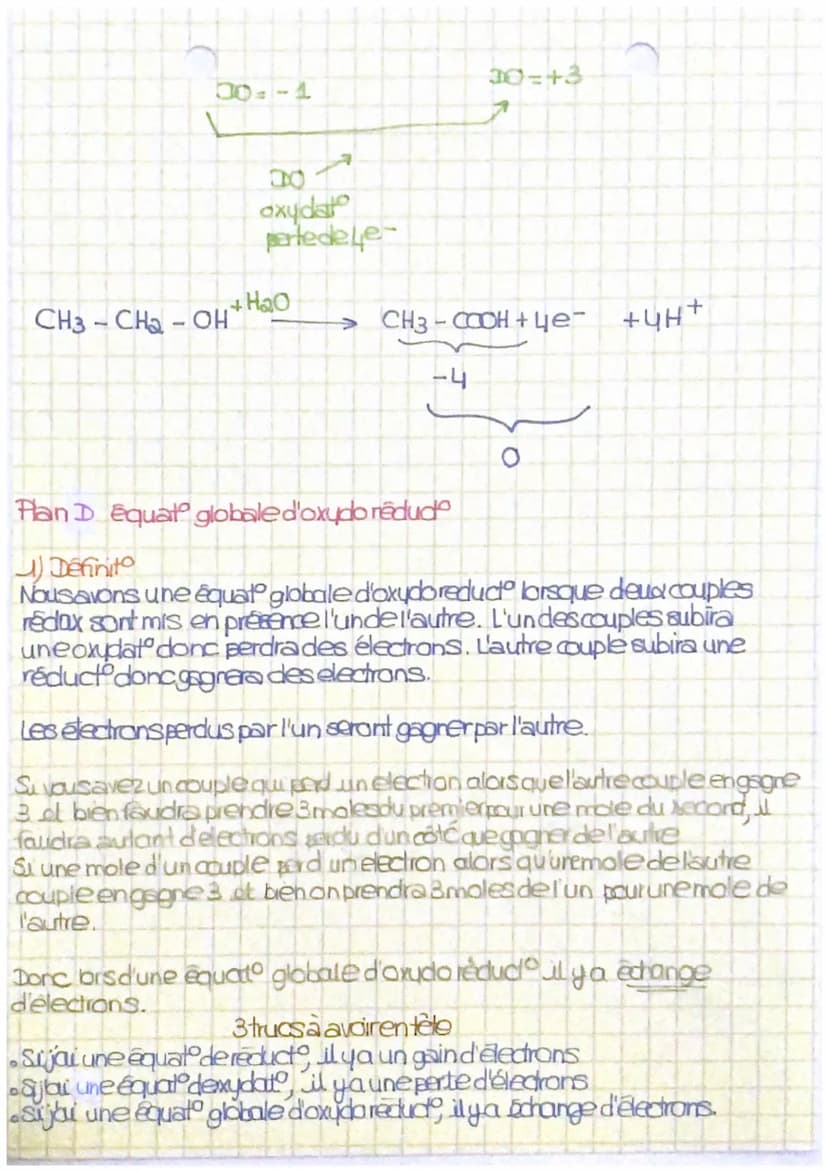 DO = -1
DO = +3
DO
oxydat°
perte de 4e-
CH3 - CH2 - OH + H2O → CH3 - COOH + 4e- + 4H+
-4
0
Plan D Équat° globale d'oxydoréduct°
1) Définit°
Nous avons une équat° globale d'oxydoreduct° lorsque deux couples
rédox sont mis en présence l'un de l'autre. L'un des couples subira
une oxydat° donc perdra des électrons. L'autre couple subira une
réduct° donc gagnera des electrons.
Les électrons perdus par l'un seront gagner par l'autre.
Si vous avez un couple qui perd un electron alors que l'autre couple en gagne
3 et bien faudra prendre 3 moles du premier pour une mole du second, il
faudra autant d'electrons perdu d'un côté que gagner de l'autre
Si une mole d'un couple perd un electron alors qu'une mole de l'autre
couple en gagne 3 et bien on prendra 3 moles de l'un pour une mole de
l'autre.
Donc lors d'une équat° globale d'oxydo réduct° il y a échange
d'électrons.
3 trucs à avoir en tête
• Si j'ai une équat° de réduct°, il y a un gain d'électrons
• Si j'ai une équat° d'oxydat°, il y a une perte d'électrons
• Si j'ai une équat° globale d'oxydoréduct°, il y a échange d'électrons.